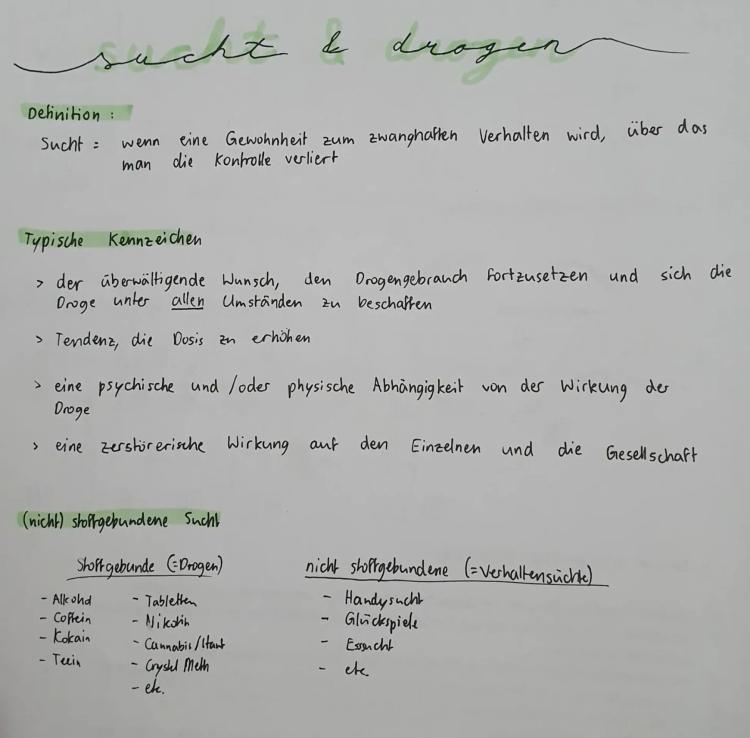 sucht & drogen
Definition :
Sucht = wenn eine Gewohnheit zum zwanghaften Verhalten wird, über das
man die Kontrolle verliert
Typische Kennzeichen
> der überwältigende Wunsch, den Drogengebrauch fortzusetzen und sich die
Droge unter allen Umständen zu beschaffen
> Tendenz, die Dosis zu erhöhen
> eine psychische und/oder physische Abhängigkeit von der Wirkung der
Droge
> eine zerstörerische Wirkung auf den Einzelnen und die Gesellschaft
(nicht) stoffgebundene Sucht
Stoffgebunde (=Drogen)
- Alkohol
- Coffein
- Kokain
- Teein
- Tabletten
- Nikotin
- Cannabis/Hanf
- Crystel Meth
- etc.
nicht stoffgebundene (=Verhaltensüchte)
- Handysucht
- Glückspiele
- Esssucht
- etc.